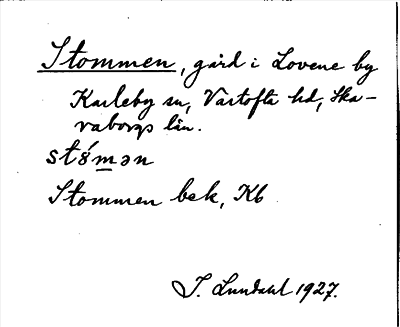 Stommen, gård i Lovene by
Karleby sn, Vartofta hd, Ska-
raborgs län.
stɷ́mən
Stommen bek, Kb
I. Lundahl 1927.